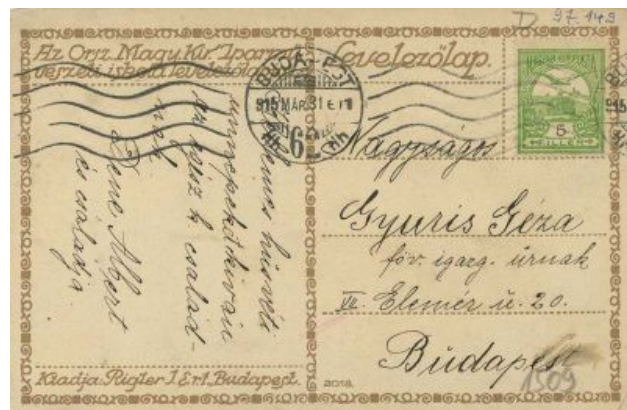 D 97.149
Az Orsz. Magy. Kir. Iparmű-
vészeti iskola levelezőlap
Levelezőlap.
BUDAPEST
915 MÁR.31 E
62
5
FILLÉR
Kellemes húsvéti
ünnepeket kíván
az egész k. család-
nak
Dene Albert
és családja
Nagyságos
Gyuris Géza
föv. igazg. úrnak
VII. Elemér u. 20.
Budapest
1509
Kiadja Rigler J. E. r.t. Budapest.
2018